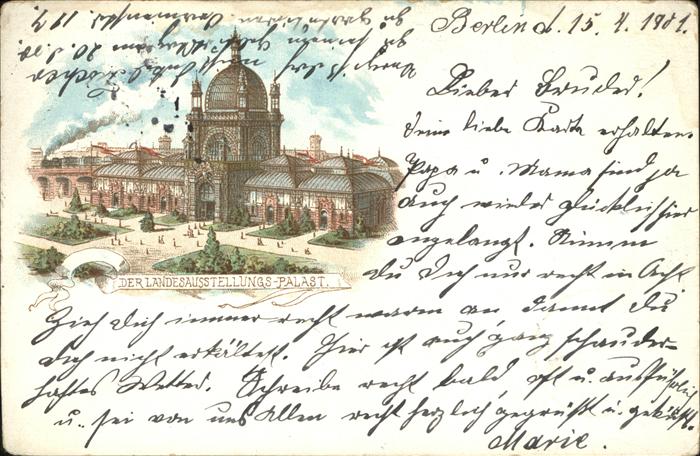 Berlin d. 15. 4. 1901.
Lieber Bruder!
Deine liebe Karte erhalten.
Papa u. Mama sind ja
auch wieder glücklich hier
angelangt. Nimm
Du Dich nur recht in Acht
Zieh Dich immer recht warm an damit Du
Dich nicht erkältest. Hier ist auch ganz schauder-
haftes Wetter. Schreibe recht bald, oft u. ausführlich
u. sei von uns Allen recht herzlich gegrüßt u. geküßt.
Marie.
DER LANDESAUSSTELLUNGS-PALAST.